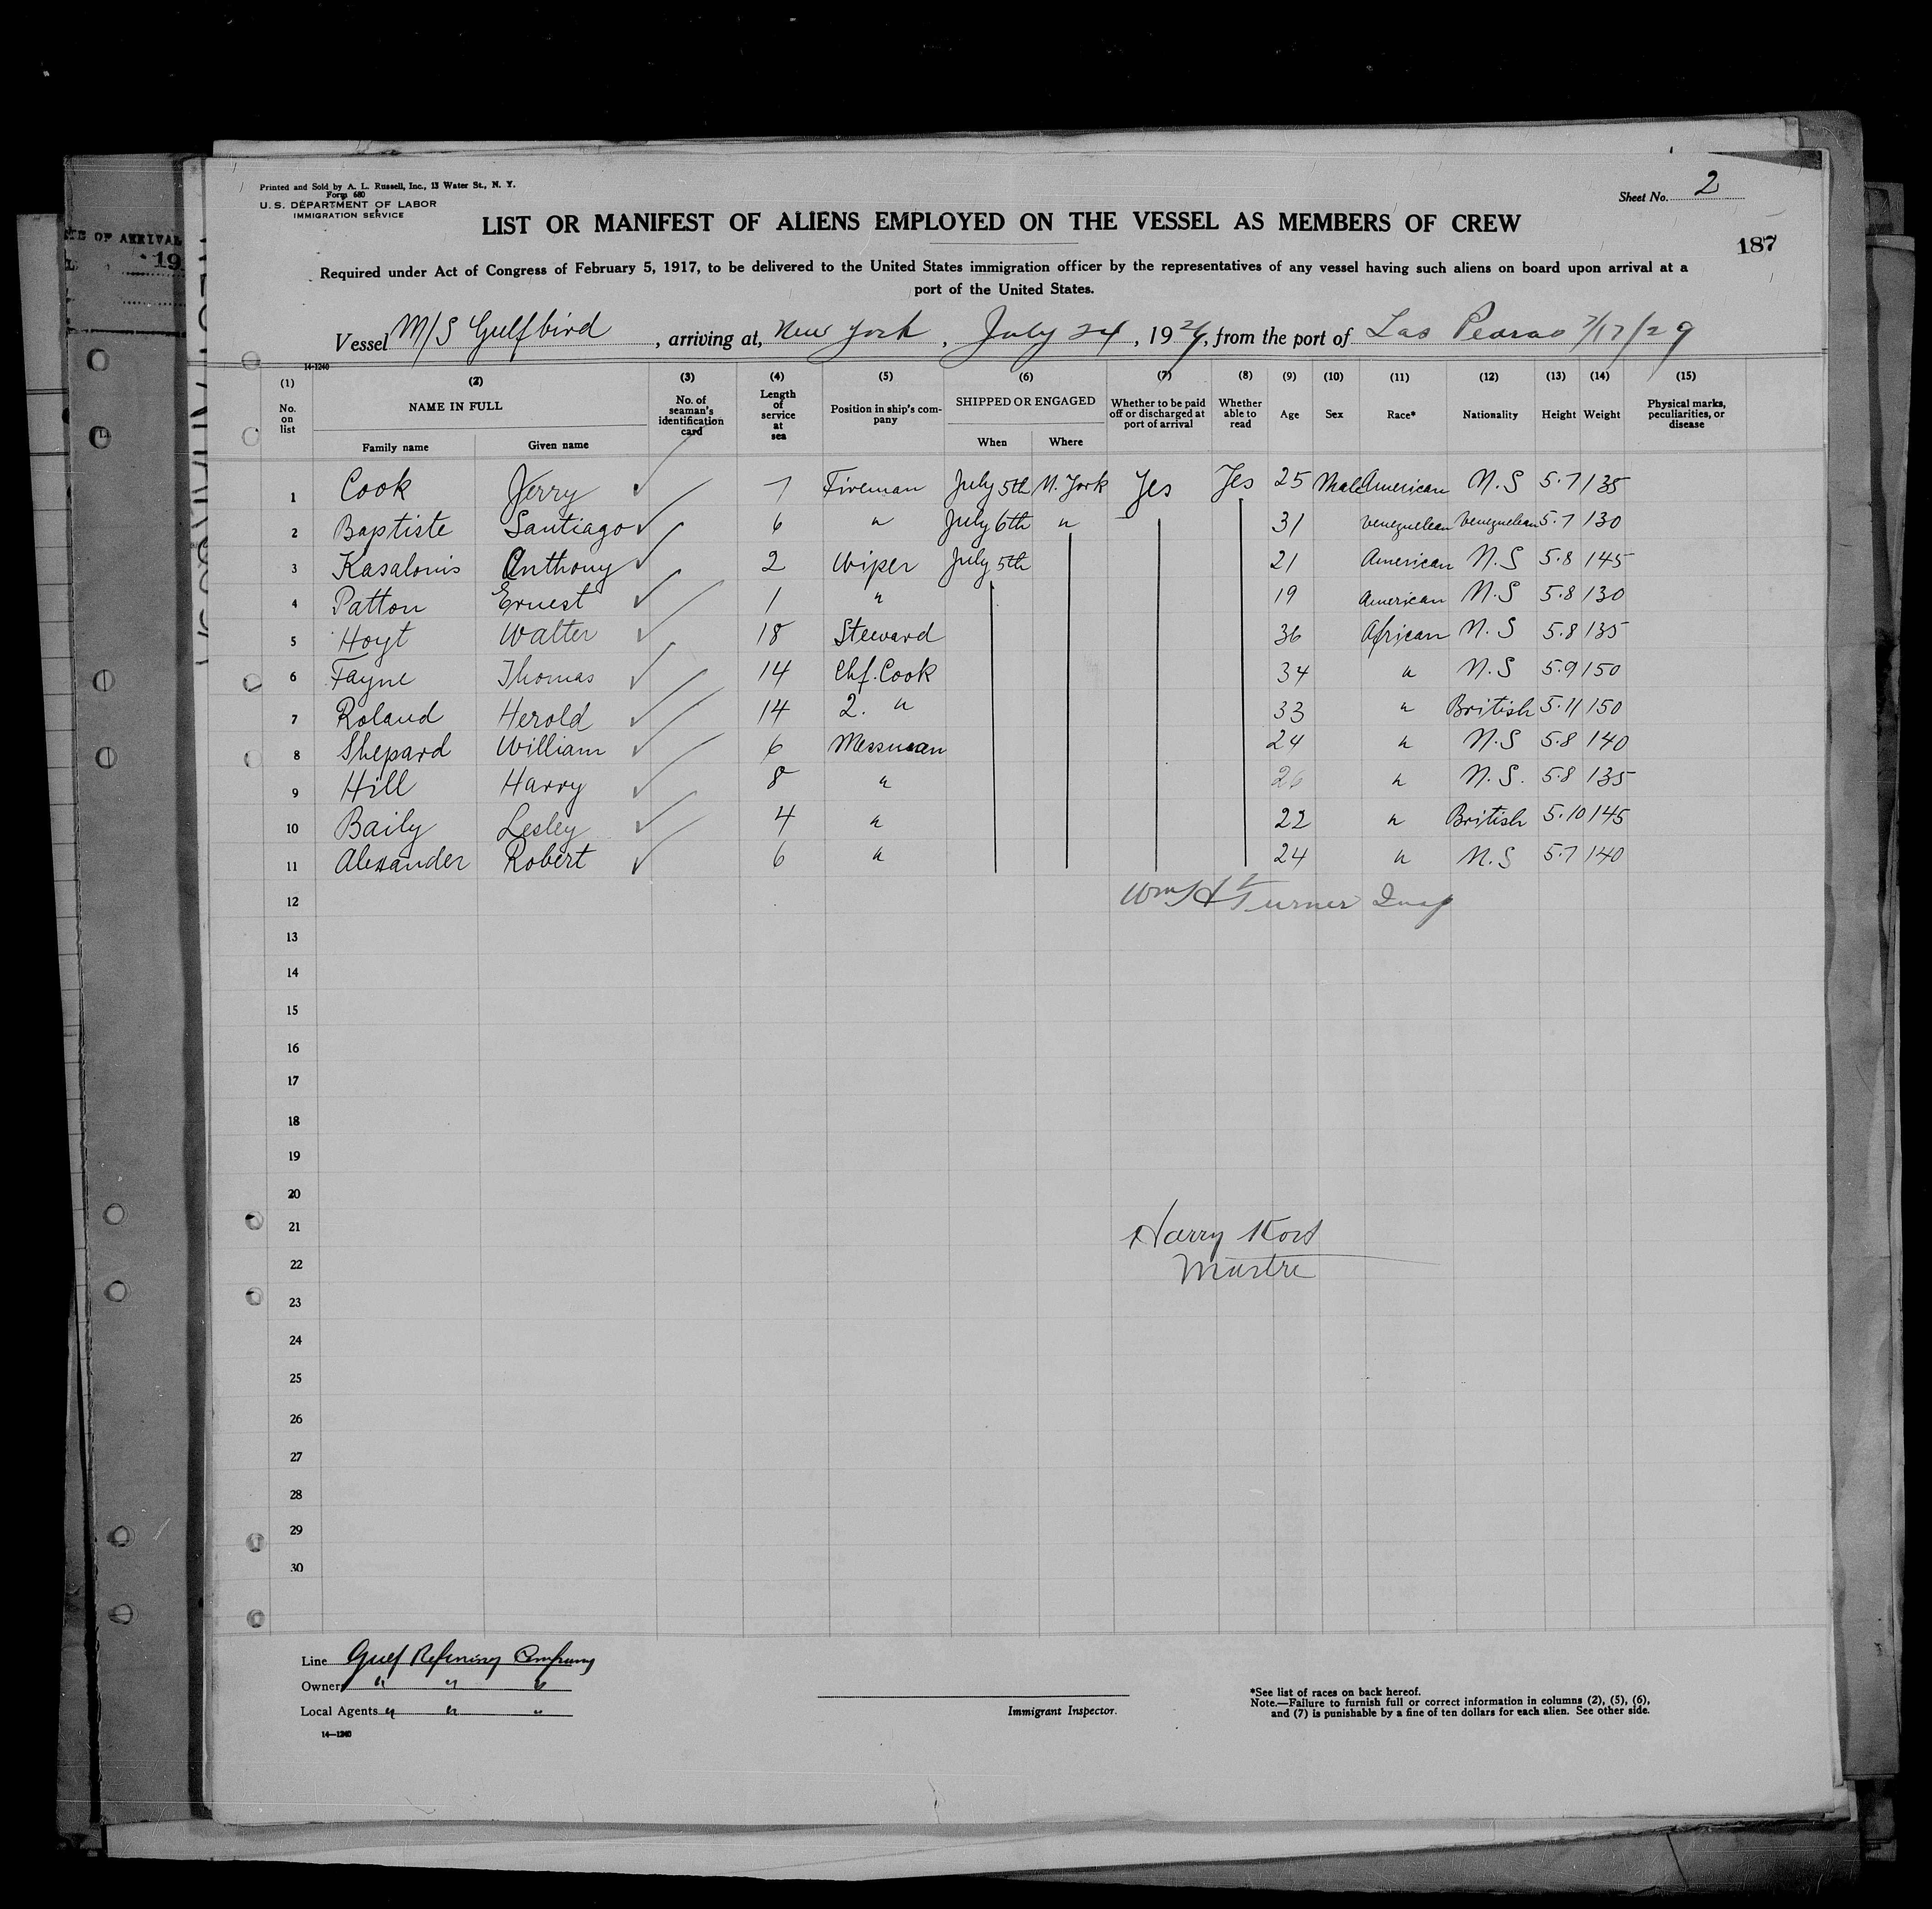 Printed and Sold by A. L. Russell, Inc., 13 Water St., N. Y.
Form 680
U. S. DEPARTMENT OF LABOR
IMMIGRATION SERVICE
Sheet No. 2
LIST OR MANIFEST OF ALIENS EMPLOYED ON THE VESSEL AS MEMBERS OF CREW
187
Required under Act of Congress of February 5, 1917, to be delivered to the United States immigration officer by the representatives of any vessel having such aliens on board upon arrival at a
port of the United States.
Vessel M/S Gulfbird, arriving at, New York, July 24, 1929, from the port of Las 7/17/29
14-1240
(1) (2) (3) (4) (5) (6) (7) (8) (9) (10) (11) (12) (13) (14) (15)
No. on list NAME IN FULL No. of seaman's identification card Length of service at sea Position in ship's com-pany SHIPPED OR ENGAGED Whether to be paid off or discharged at port of arrival Whether able to read Age Sex Race* Nationality Height Weight Physical marks, peculiarities, or disease
Family name Given name When Where
1 Cook Jerry ✓ 7 Fireman July 5th N. York Yes Yes 25 Male American N.S 5.7 135
2 Baptiste Santiago ✓ 6 " July 6th " 31 Venezuelean Venezuelean 5.7 130
3 Kasalonis Anthony ✓ 2 Wiper July 5th 21 American N.S 5.8 145
4 Patton Ernest ✓ 1 " 19 American N.S 5.8 130
5 Hoyt Walter ✓ 18 Steward 36 African N.S 5.8 135
6 Fayne Thomas ✓ 14 Chf. Cook 34 " N.S 5.9 150
7 Roland Herold ✓ 14 2. " 33 " British 5.11 150
8 Shepard William ✓ 6 Messman 24 " N.S 5.8 140
9 Hill Harry ✓ 8 " 26 " N.S. 5.8 135
10 Baily Lesley ✓ 4 " 22 " British 5.10 145
11 Alexander Robert ✓ 6 " 24 " N.S 5.7 140
12 Wm H Turner Insp
13
14
15
16
17
18
19
20
21 Harry
22
23
24
25
26
27
28
29
30
Line Gulf Refining Company
Owners " " "
Local Agents " " "
14—1240
Immigrant Inspector.
*See list of races on back hereof.
Note.—Failure to furnish full or correct information in columns (2), (5), (6),
and (7) is punishable by a fine of ten dollars for each alien. See other side.